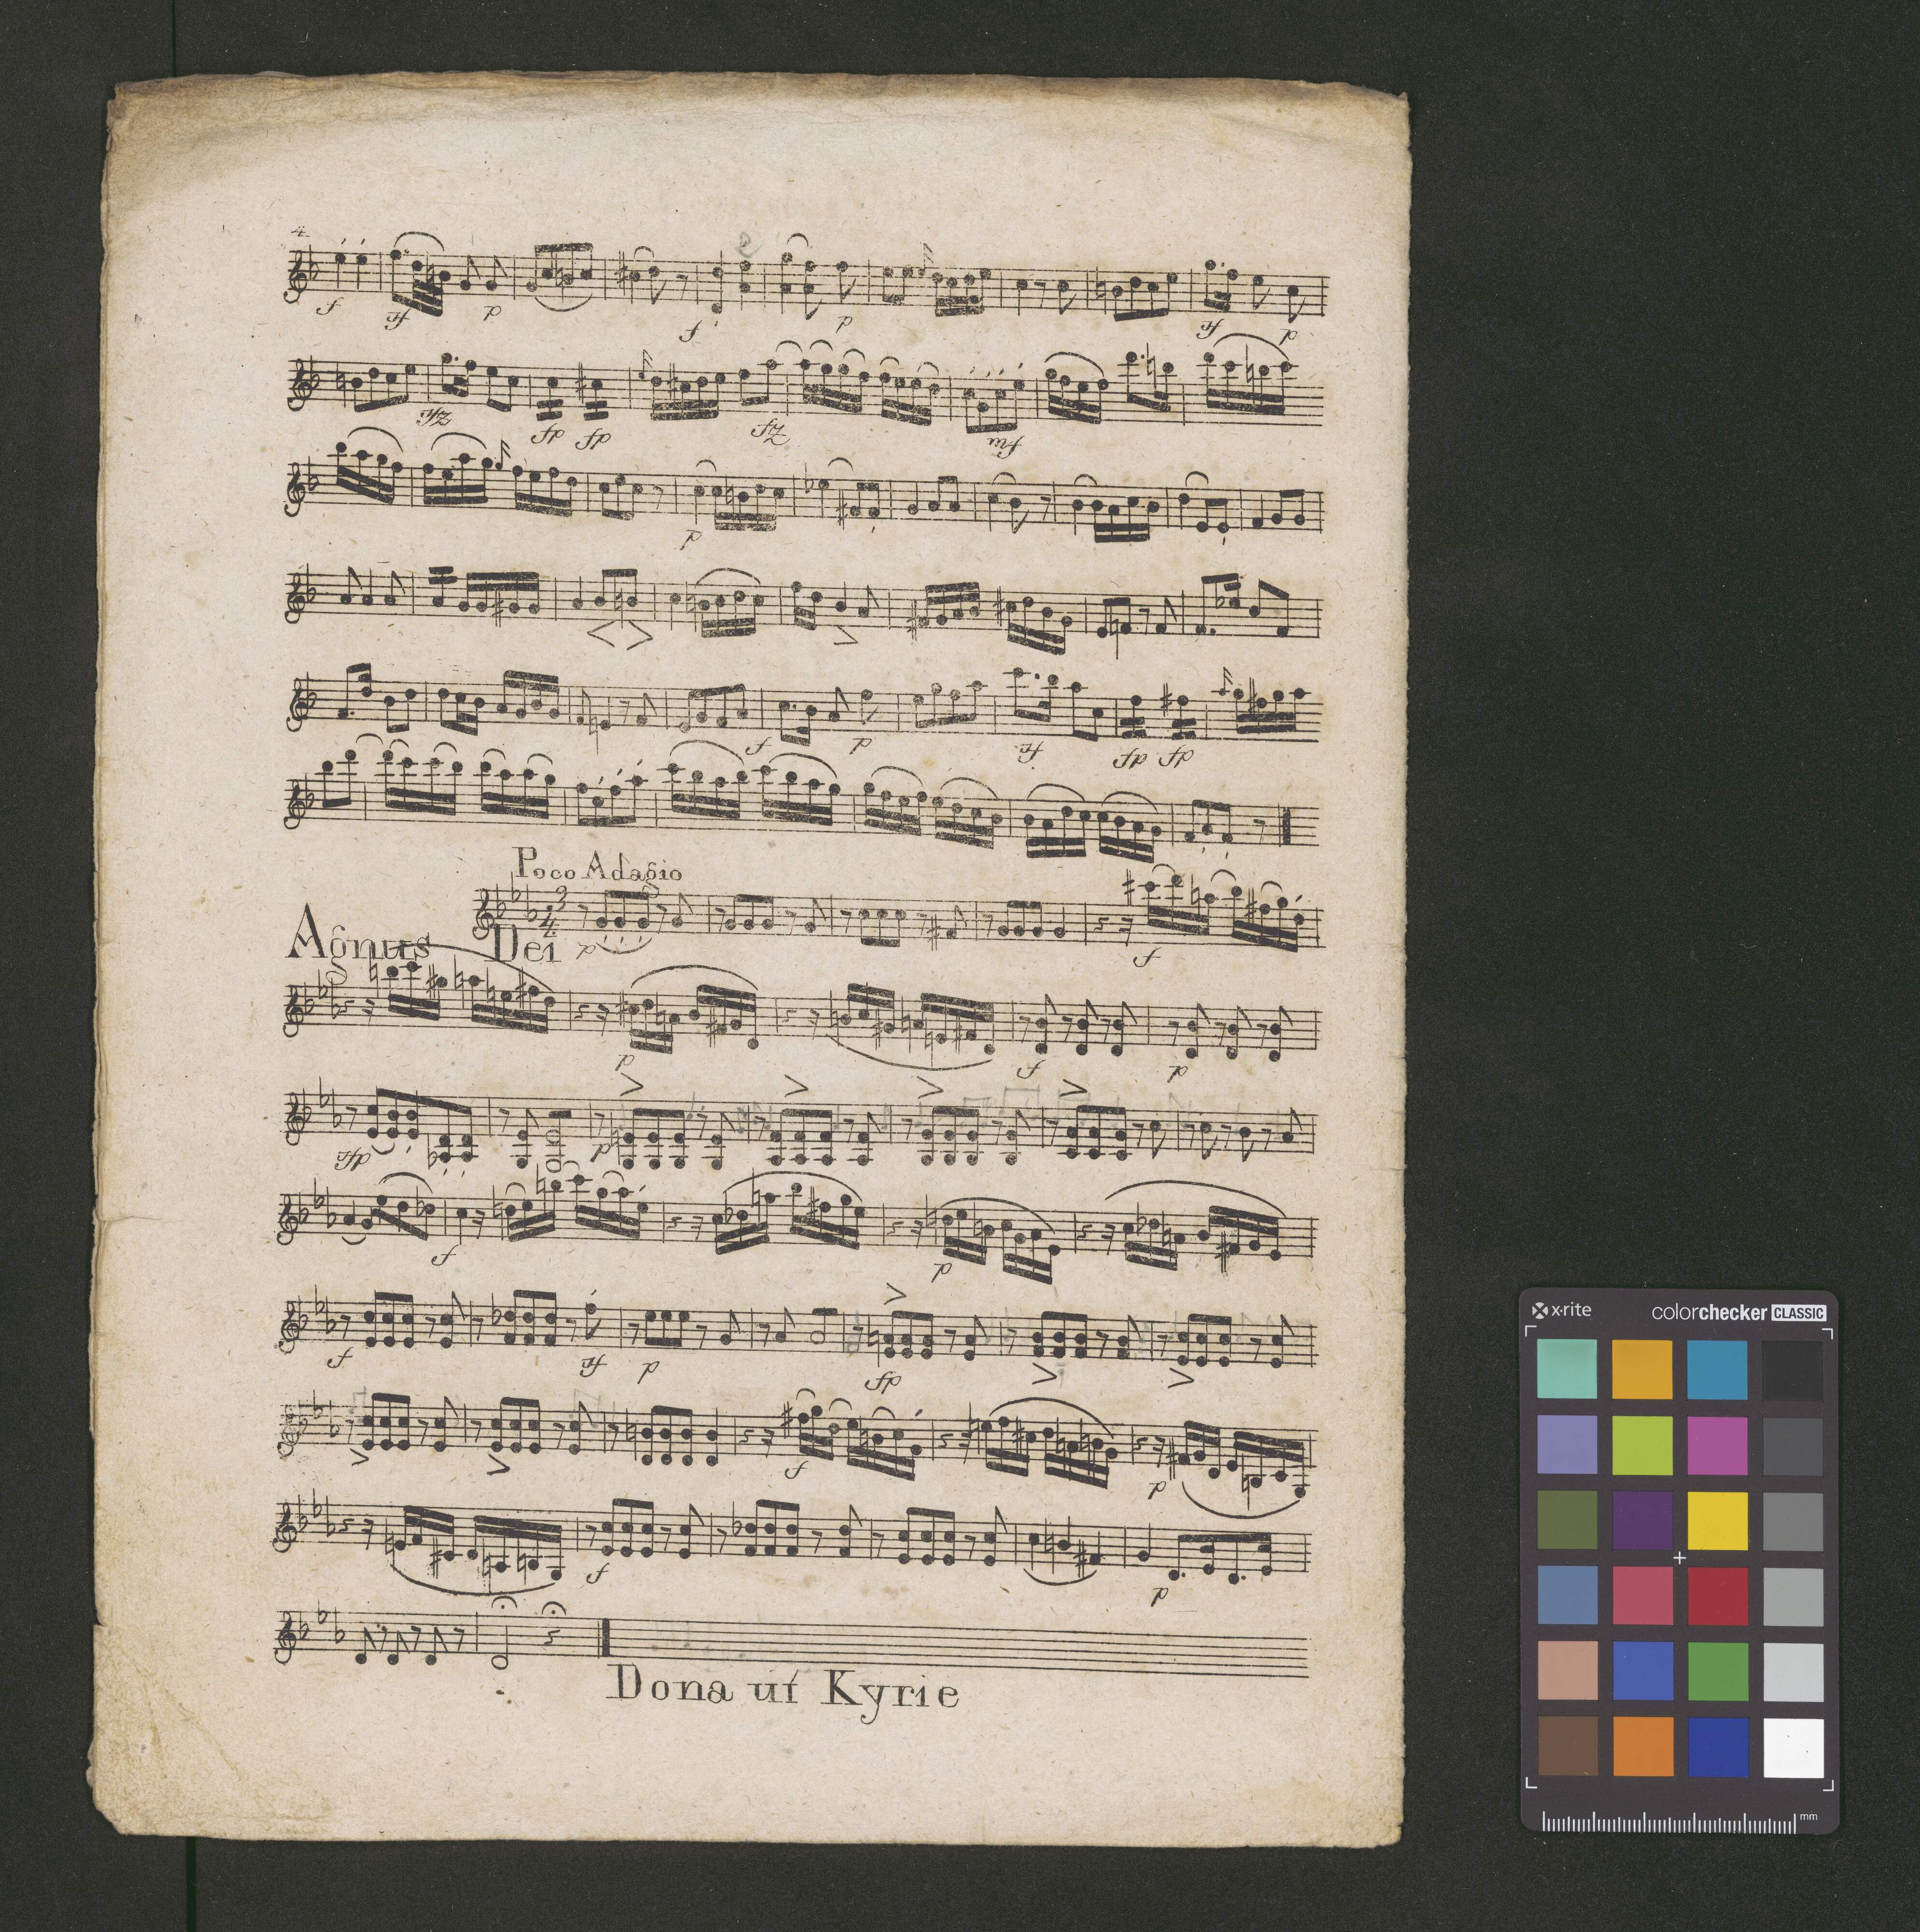 4
f ff p f p ff p
ffz fp fp fz fm
p
f p ff fp fp
Poco Adagio
3 4
Agnus Dei p f
p f p
ffp p
f p
f ff p fp
f p
f p
Dona ut Kyrie
x-rite colorchecker CLASSIC
mm